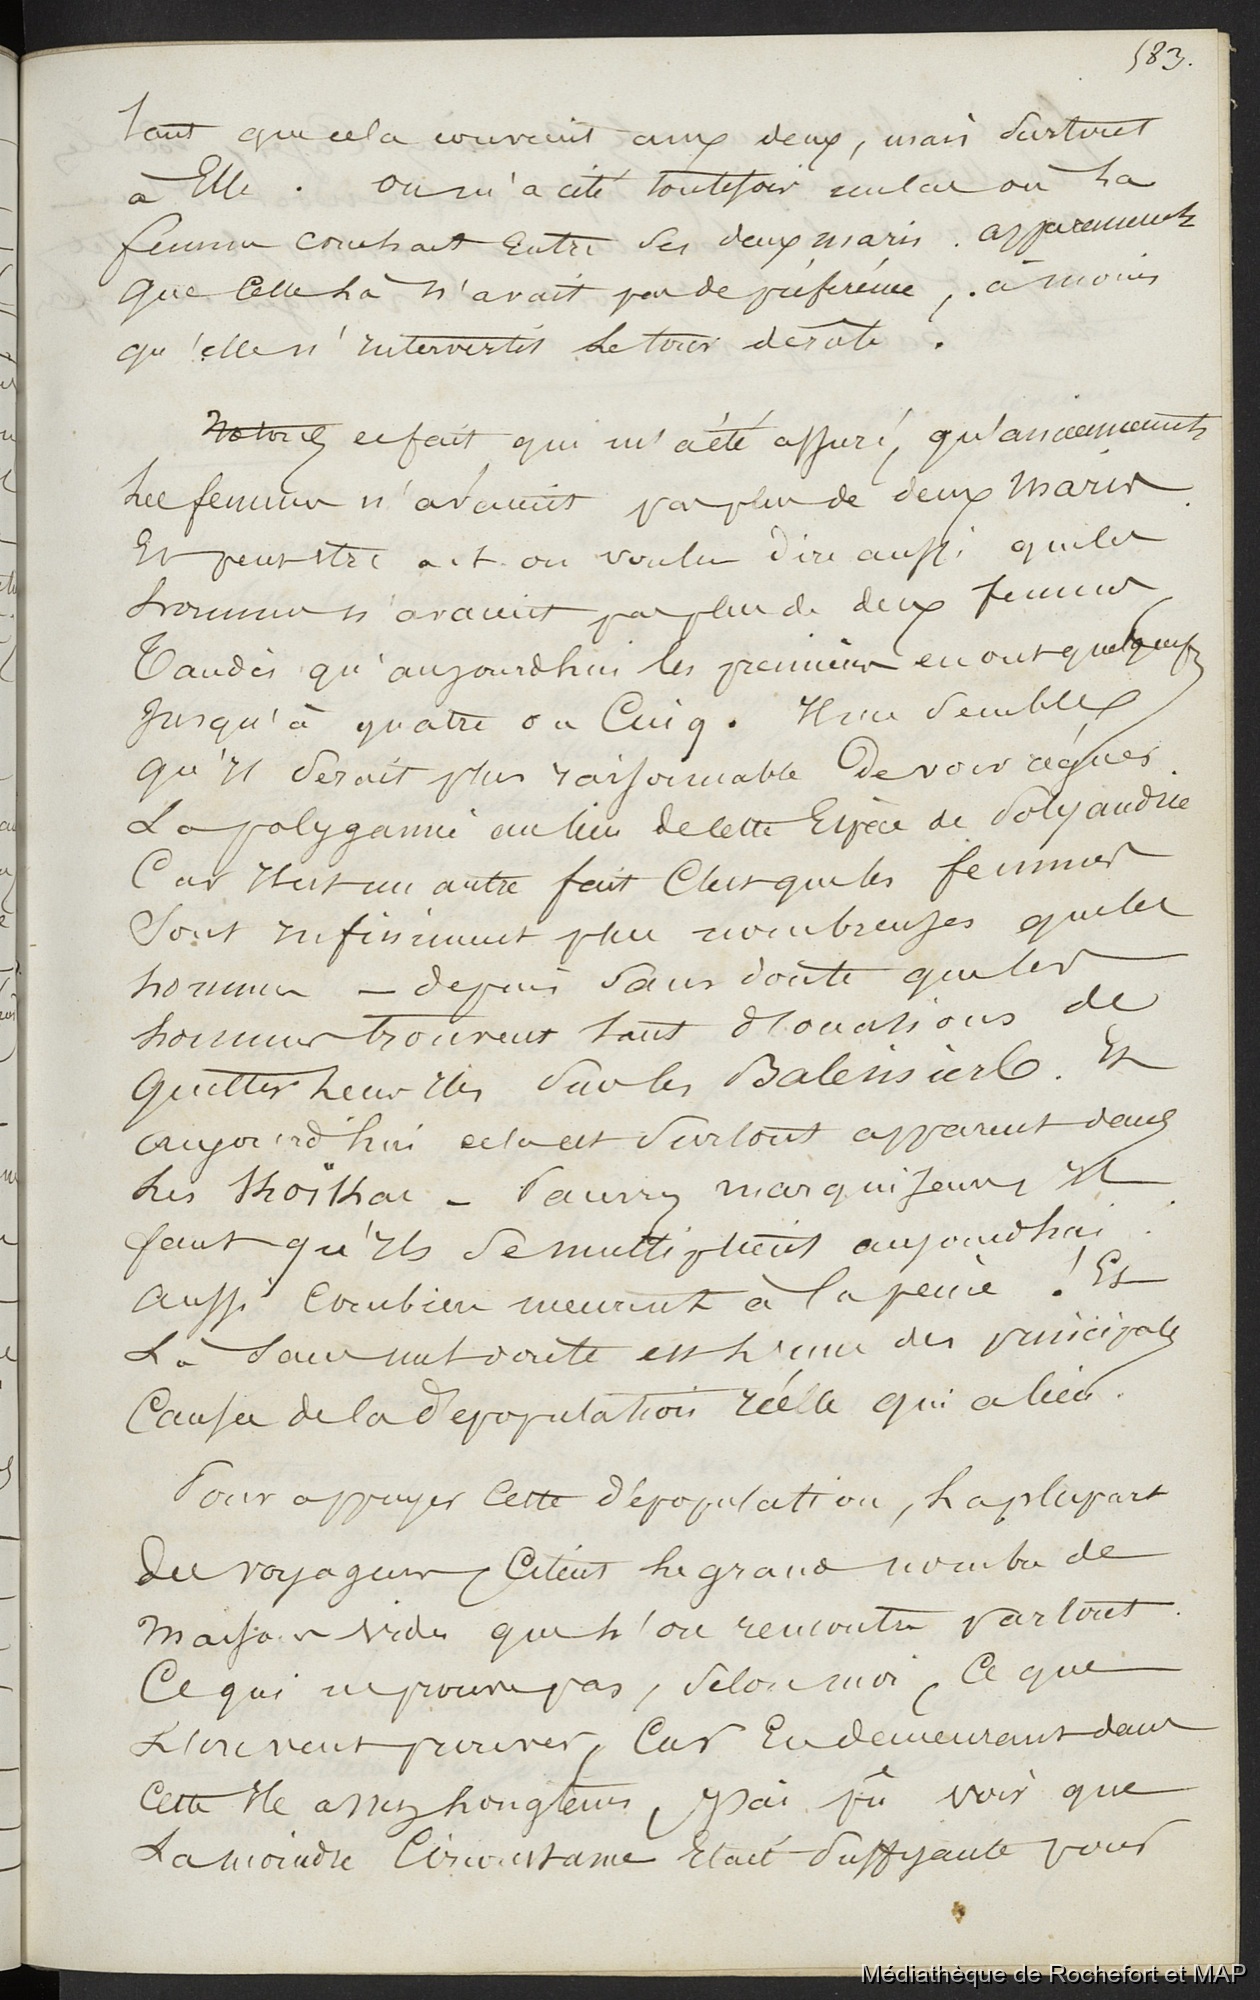 583.
tant que cela convient aux deux, mais surtout
à Elle. on m'a cité toutefois un cas où la
femme couchait Entre ses deux maris. apparemment
que Celle là n'avait pas de préférence, à moins
qu'elle n'intervertit le tour de rôle.
ce fait qui m'a été assuré, qu'anciennement
les femmes n'avaient pas plus de deux maris
Et peut être a-t-on voulu dire aussi que les
hommes n'avaient pas plus de deux femmes
Tandis qu'aujourdhui les premières en ont quelquefs
jusqu'à quatre ou Cinq. Il me semble
qu'il serait plus raisonnable De voir régner
La polygamie au lieu de cette Espèce de Polyandrie
Car il est un autre fait C'est que les femmes
Sont infiniment plus nombreuses que les
hommes — depuis sans doute que les
hommes trouvent tant d'occasions de
quitter leurs iles sur les Baleiniers. Et
aujourd'hui cela est surtout apparent dans
les Koïkas — Pauvres marquisiennes il
faut qu'ils se multiplient aujourdhui.
Aussi Combien meurent à la peine ! Et
Là sans nul doute est l'une des principales
Causes de la dépopulation réelle qui a lieu.
Pour appuyer Cette dépopulation, la plupart
Des voyageurs Citent le grand nombre de
Maisons vides que l'on rencontre partout.
Ce qui ne prouve pas, selon moi, Ce que
L'on veut prouver, Car En demeurant dans
Cette Ile assez longtems, j'ai pû voir que
La moindre Circonstance Etait suffisante pour
Médiathèque de Rochefort et MAP